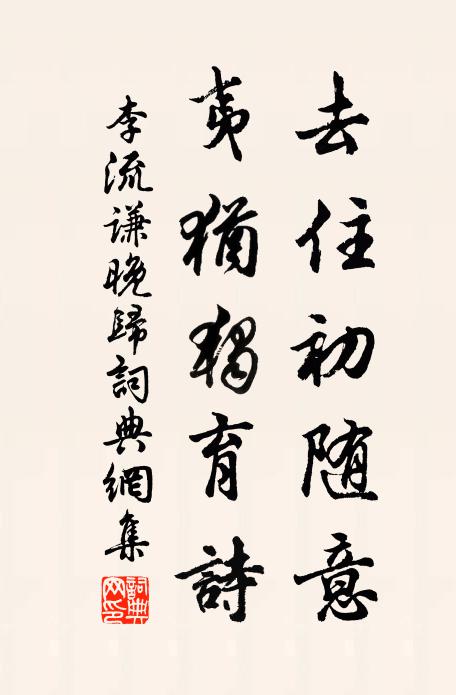 去住初随意
夷猶獨育詩
李流謙晚歸詞典網集
詞典网印